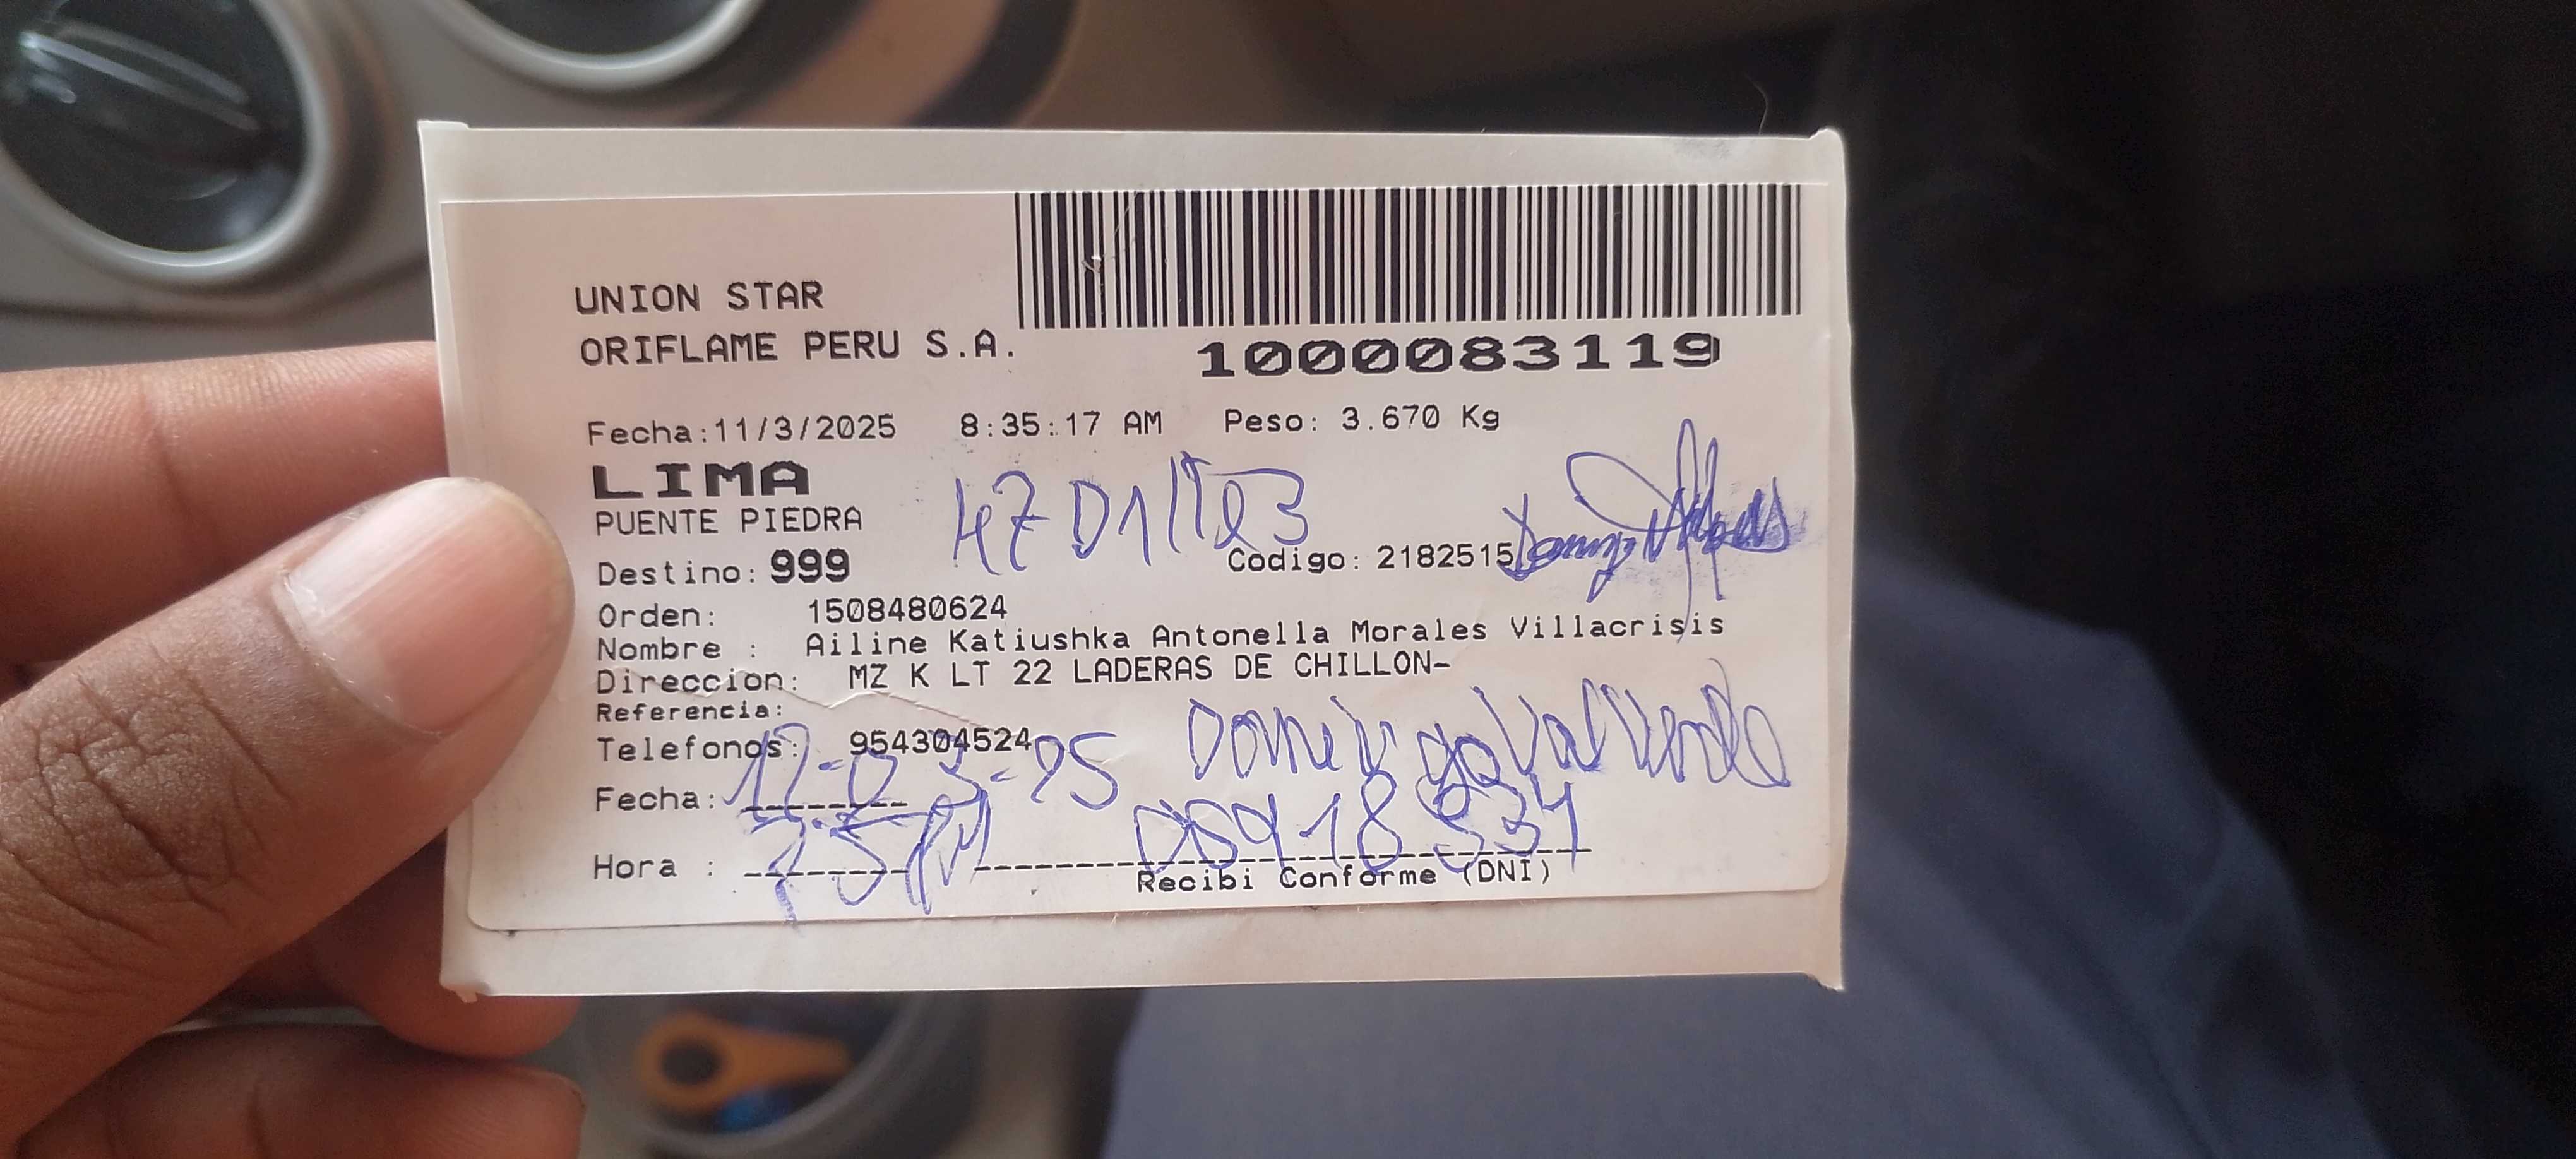 UNION STAR
ORIFLAME PERU S.A.
1000083119
Fecha:11/3/2025 8:35:17 AM Peso: 3.670 Kg
LIMA
PUENTE PIEDRA
Destino: 999 Codigo: 2182515
Orden: 1508480624
Nombre : Ailine Katiushka Antonella Morales Villacrisis
Direccion: MZ K LT 22 LADERAS DE CHILLON-
Referencia:
Telefonos: 954304524
Domingo Valverde
Fecha: 12-03-25
Hora :
Recibi Conforme (DNI)